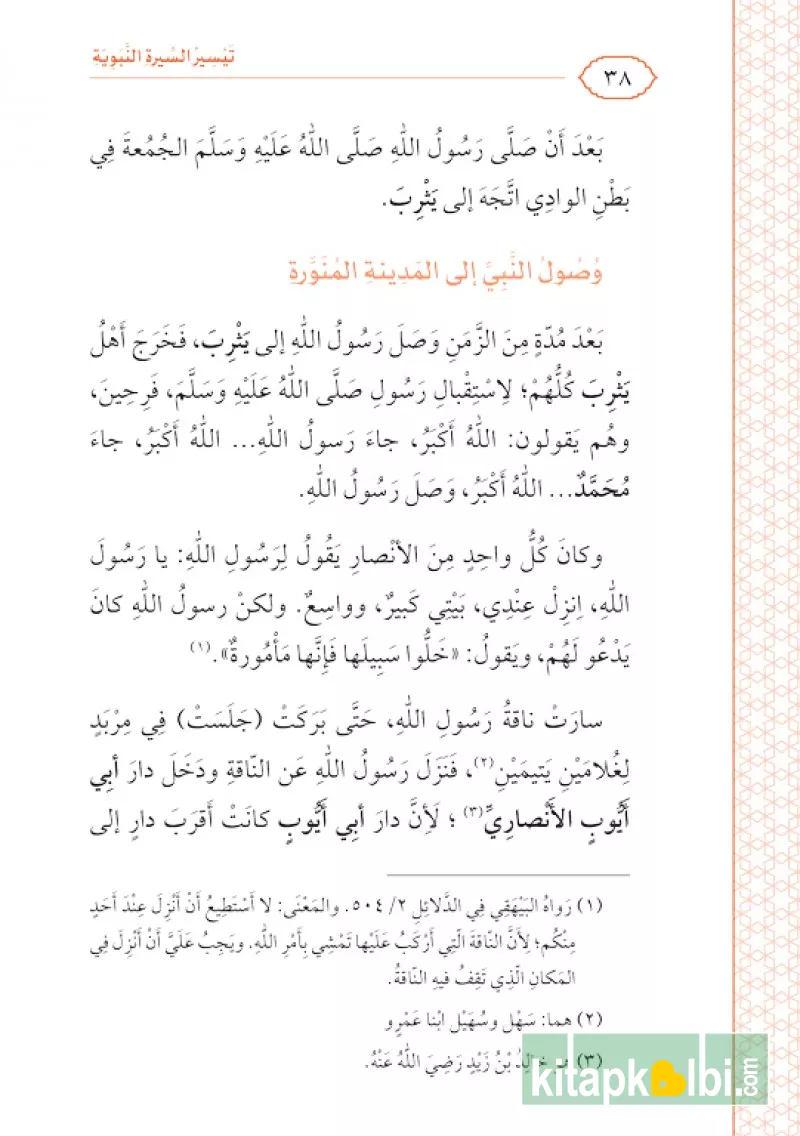 تَيْسِيرُ السِّيرةِ النَّبَوِيَّةِ
٣٨
بَعْدَ أَنْ صَلَّى رَسُولُ اللهِ صَلَّى اللهُ عَلَيْهِ وَسَلَّمَ الجُمُعةَ فِي
بَطْنِ الوادِي اتَّجَهَ إلى يَثْرِبَ.
وُصُولُ النَّبِيِّ إلى المَدِينةِ المُنَوَّرةِ
بَعْدَ مُدّةٍ مِنَ الزَّمَنِ وَصَلَ رَسُولُ اللهِ إلى يَثْرِبَ، فَخَرَجَ أَهْلُ
يَثْرِبَ كُلُّهُمْ؛ لِاسْتِقْبالِ رَسُولِ صَلَّى اللهُ عَلَيْهِ وَسَلَّمَ، فَرِحِينَ،
وهُم يَقولون: اللهُ أَكْبَرُ، جاءَ رَسولُ اللهِ... اللهُ أَكْبَرُ، جاءَ
مُحَمَّدٌ... اللهُ أَكْبَرُ، وَصَلَ رَسُولُ اللهِ.
وكانَ كُلُّ واحِدٍ مِنَ الأنْصارِ يَقُولُ لِرَسُولِ اللهِ: يا رَسُولَ
اللهِ، اِنزِلْ عِنْدِي، بَيْتِي كَبيرٌ، وواسِعٌ. ولكنْ رسولُ اللهِ كانَ
يَدْعُو لَهُمْ، ويَقولُ: «خَلُّوا سَبِيلَها فَإِنَّها مَأْمُورةٌ».(١)
سارَتْ ناقةُ رَسُولِ اللهِ، حَتَّى بَرَكَتْ (جَلَسَتْ) فِي مِرْبَدٍ
لِغُلامَيْنِ يَتِيمَيْنِ(٢)، فَنَزَلَ رَسُولُ اللهِ عَن النّاقةِ ودَخَلَ دارَ أبي
أَيُّوبٍ الأَنْصارِيِّ(٣) ؛ لَأِنَّ دارَ أبِي أَيُّوبٍ كانَتْ أَقرَبَ دارٍ إلى
(١) رَواهُ البَيْهَقِي فِي الدَّلائِلِ ٢/ ٥٠٤. والمَعْنَى: لا أَسْتَطِيعُ أَنْ أَنْزِلَ عِنْدَ أَحَدٍ
مِنْكُم؛ لِأَنَّ النّاقةَ الّتِي أَرْكَبُ عَلَيْها تَمْشِي بِأَمْرِ اللهِ. ويَجِبُ عَلَيَّ أَنْ أَنْزِلَ فِي
المَكانِ الّذِي تَقِفُ فيهِ النّاقةُ.
(٢) هما: سَهْل وسُهَيْل ابْنا عَمْرٍو
(٣) خالِدُ بْنُ زَيْدٍ رَضِيَ اللهُ عَنْهُ.
kitapkolbi.com